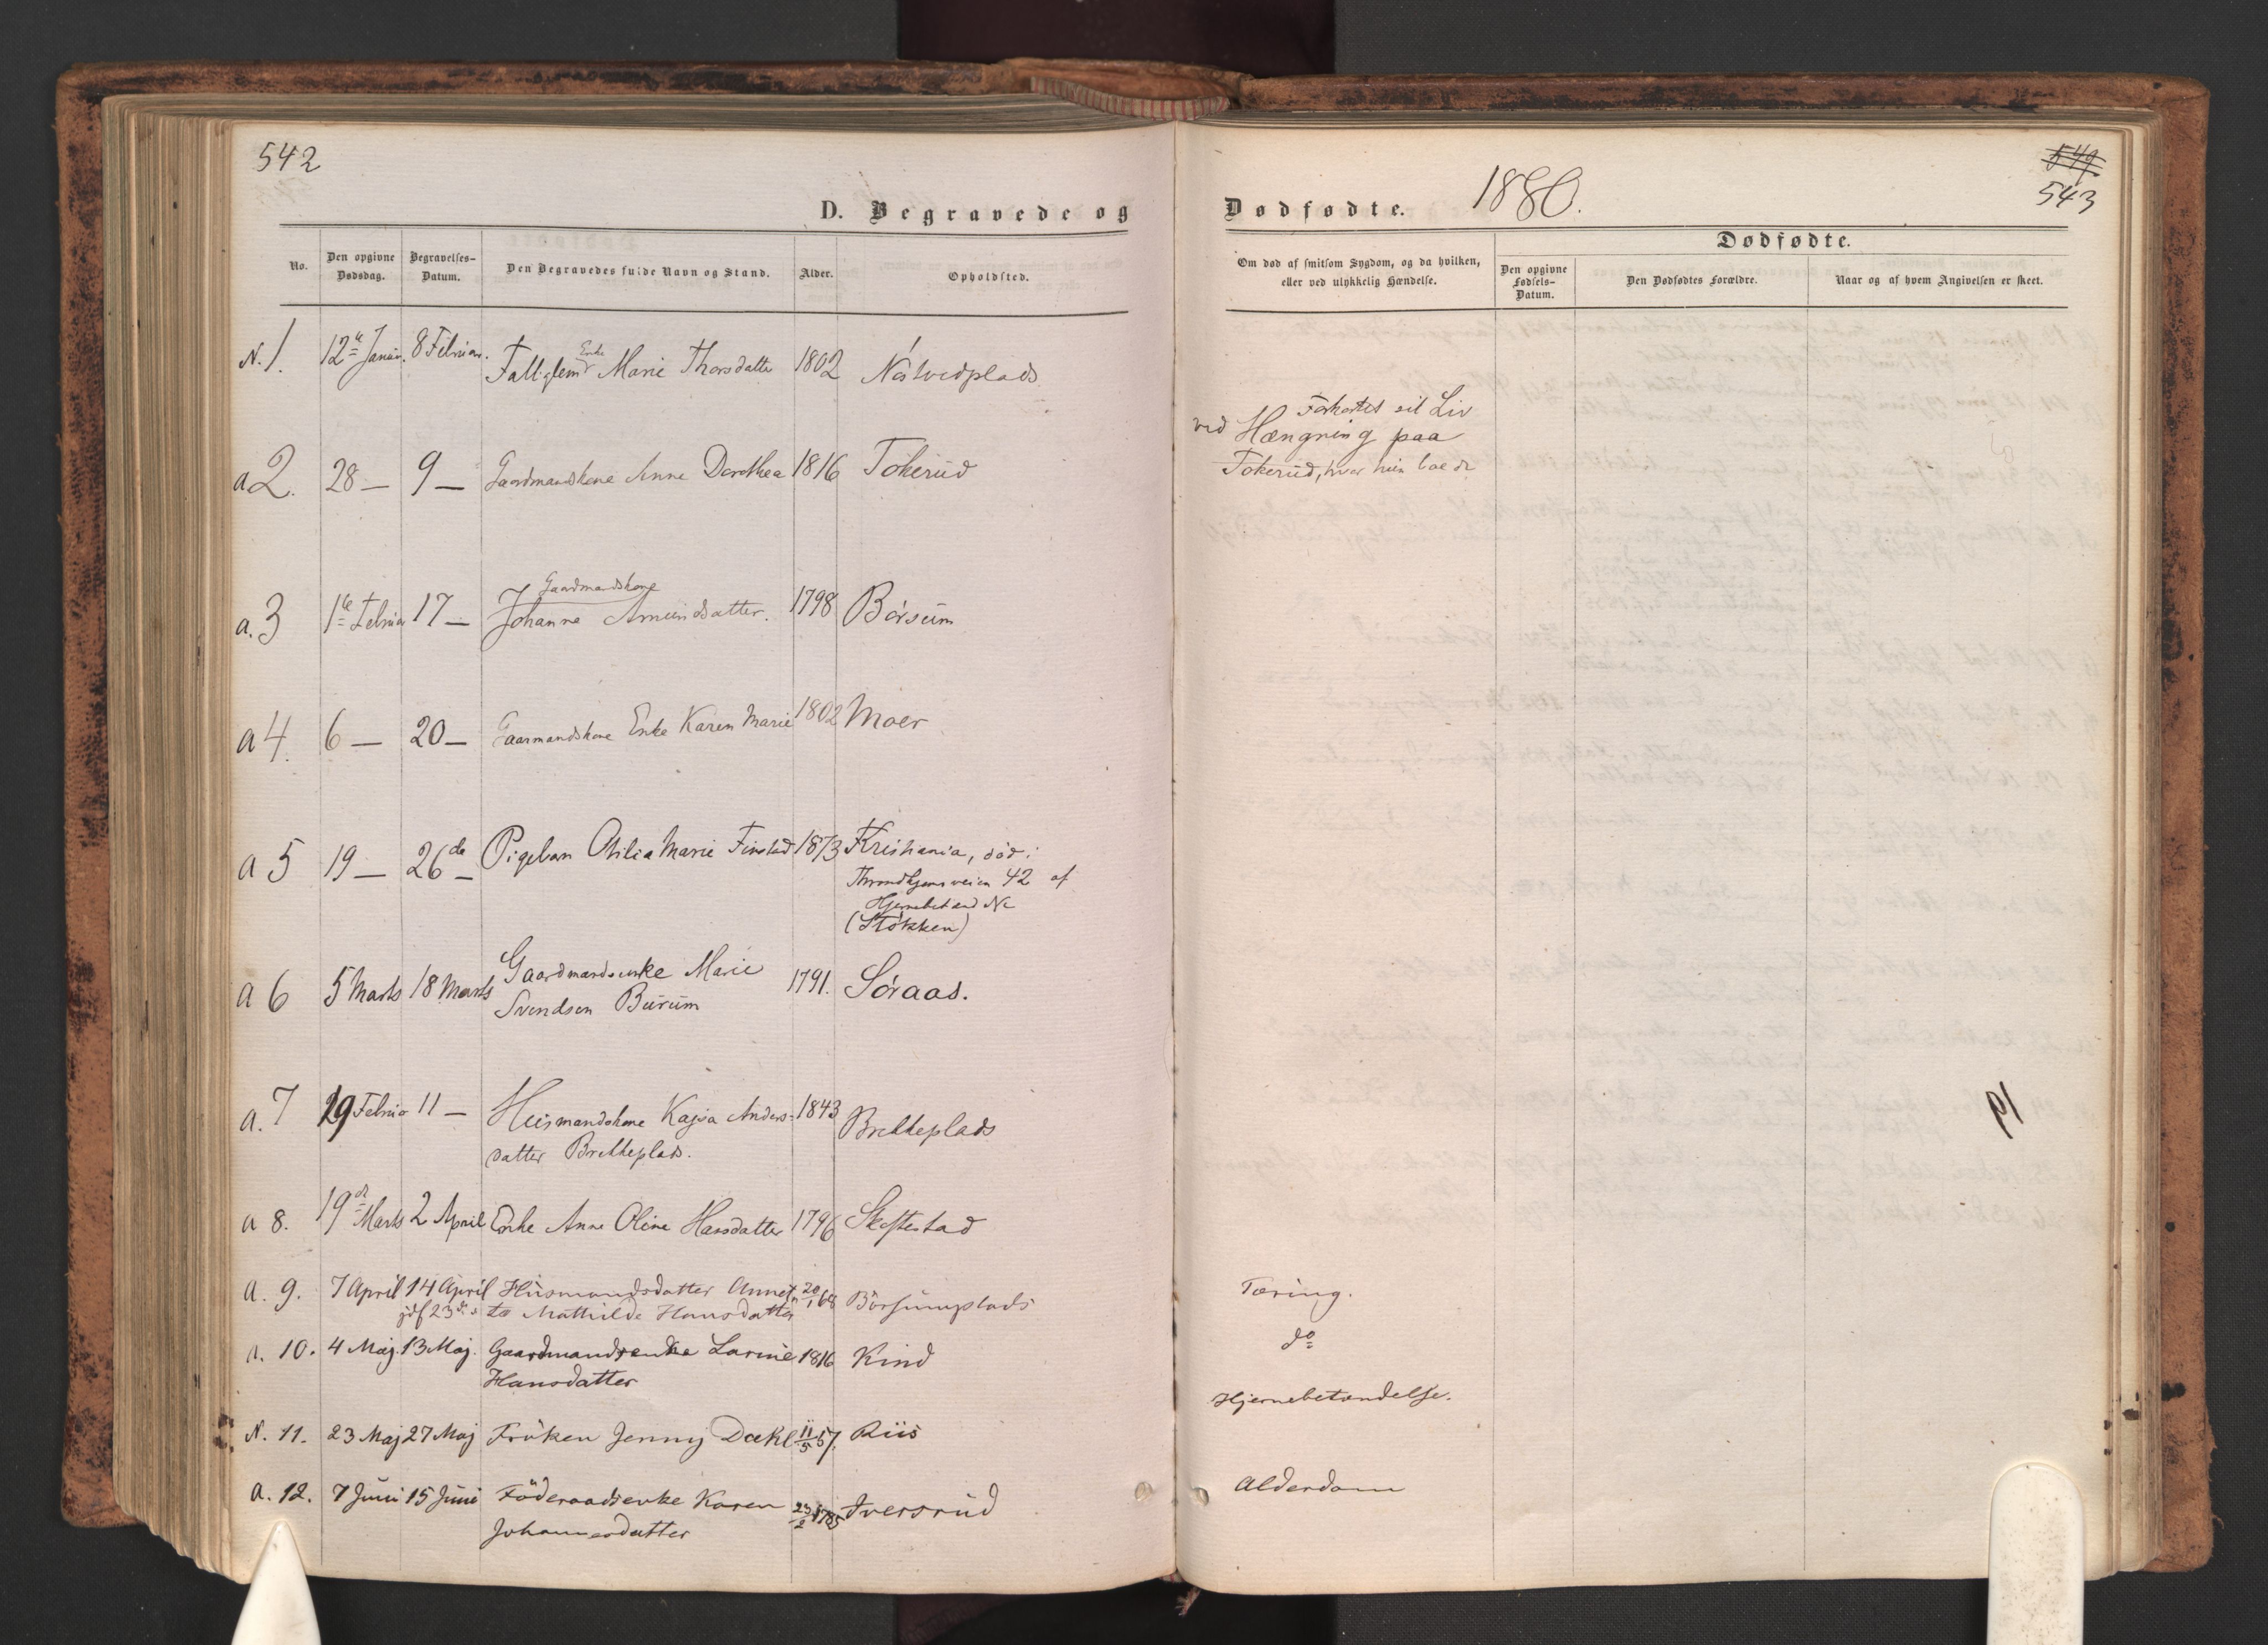 542
D. Begravede og
No.
Den opgivne Dødsdag.
Begravelses-Datum.
Den Begravedes fulde Navn og Stand.
Alder.
Opholdsted.
N. 1. 12te Januar. 8 Februar. Fattiglem Enke Marie Thorsdatter 1802 Nóstvedplads
a 2. 28 — 9 — Gaardmandskone Anne Dorothea 1816 Tokerud
Gaardmandskone
a. 3 1te Februar 17 — Johanne Amundsdatter. 1798 Børsum
a 4. 6 — 20 — Gaarmandskone Enke Karen Marie 1802 Moer
a 5 19 — 26de — Pigebarn Otilia Marie Finstad 1873 Kristiania, död i
Throndhjemsveien 42 af
Hjernebetænd
(Stökken)
a 6 5 Marts 18 Marts Gaardmandsenke Marie 1791. Sóraas.
Svendsen Burum
a. 7 29 Februar 11 — Husmandskone Kajsa Anders- 1843 Brekkeplads
datter Brekkeplads.
a 8. 19de Marts 2 April Enke Anne Oline Hansdatter 1796 Skoftestad
a. 9. 7 April 14 April Husmandsdatter Annet 20/1 68 Börsumplads
jdf 23de te Mathilde Hansdatter
a. 10. 4 Maj. 13 Maj. Gaardmandsenke Larine 1816 Kind
Hansdatter
N. 11. 23 Maj 27 Maj Fröken Jenny Dækl 11/5 57. Riis
a. 12. 7 Juni 15 Juni Föderaadsenke Karen 23/2 1785 Iversrud
Johannesdatter
Dødfødte. 1880.
549
543
Om død af smitsom Sygdom, og da hvilken,
eller ved ulykkelig Hændelse.
Dødfødte.
Den opgivne Fødsels-Datum.
Den Dødfødtes Forældre.
Naar og af hvem Angivelsen er skeet.
Forkortet sit Liv
ved Hængning paa
Tokerud, hvor hun boede
Tæring.
do
Hjernebetændelse.
Alderdom